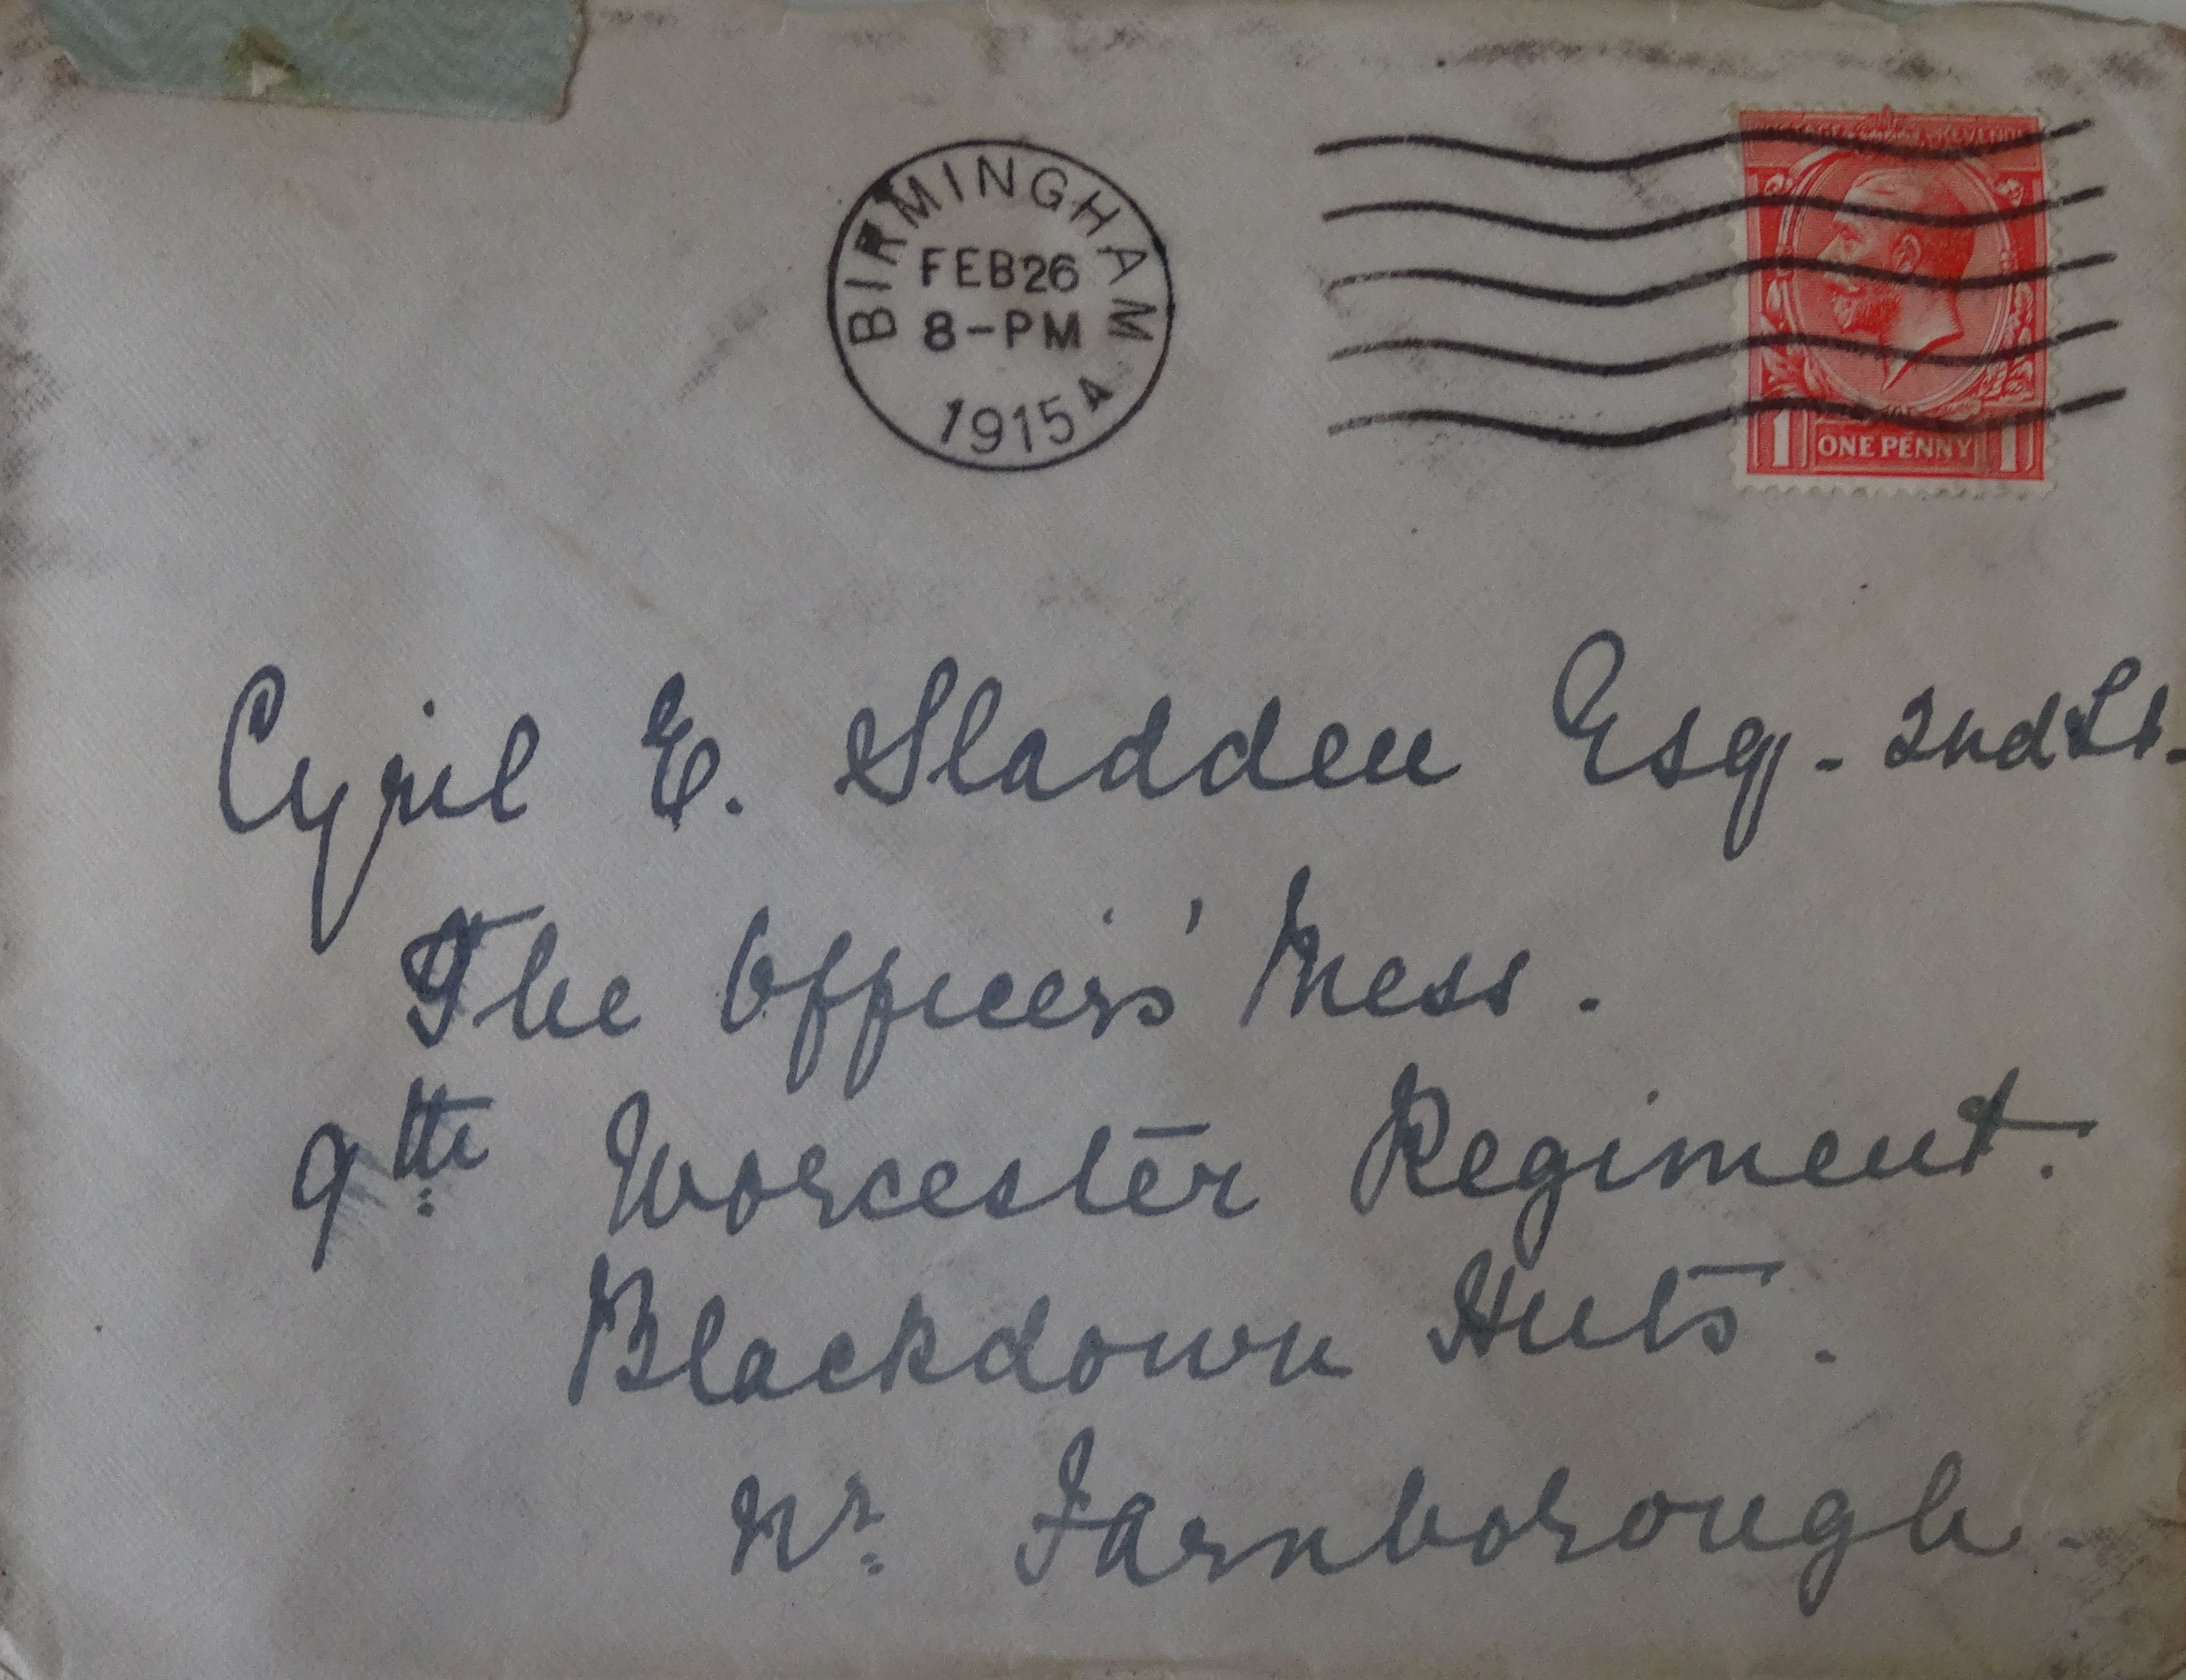 BIRMINGHAM
FEB 26
8-PM
1915 A
POSTAGE REVENUE
1 ONE PENNY 1
Cyril E. Sladden Esq. 2nd Lt.
The Officers' Mess.
9th Worcester Regiment.
Blackdown Huts.
Nr. Farnborough.